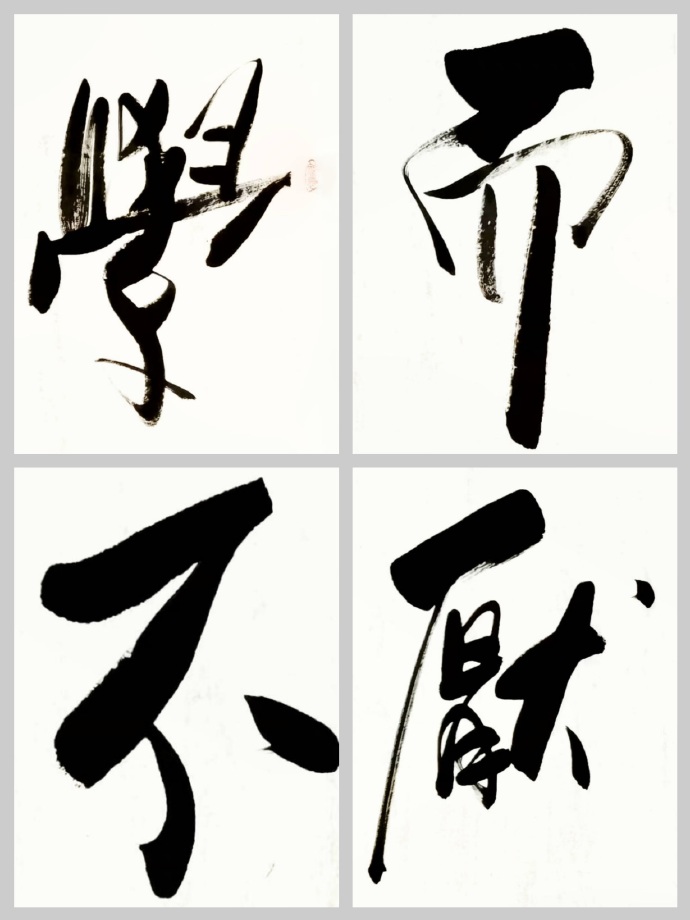 學而
不厭